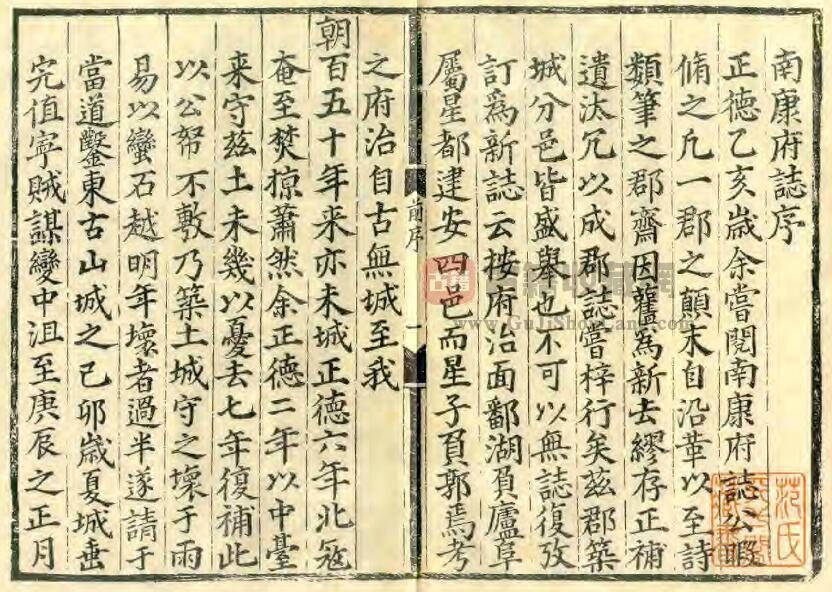 南康府誌序
正德乙亥歲余嘗閱南康府誌公暇
脩之凡一郡之顛末自沿革以至詩
類筆之郡齋因舊為新去繆存正補
遺汰冗以成郡誌嘗梓行矣茲郡築
城分邑皆盛舉也不可以無誌復攷
訂為新誌云按府治面鄱湖負廬阜
屬星都建安四邑而星子負郭焉考
前序
一
之府治自古無城至我
朝百五十年來亦未城正德六年北寇
奄至焚掠蕭然余正德二年以中臺
来守茲土未幾以憂去七年復補此
以公帑不敷乃築土城守之壞于雨
易以蠻石越明年壞者過半遂請于
當道鑿東古山城之己卯歲夏城垂
完值寧賊謀變中沮至庚辰之正月
古籍
www.GuJiShouCang.com
范氏